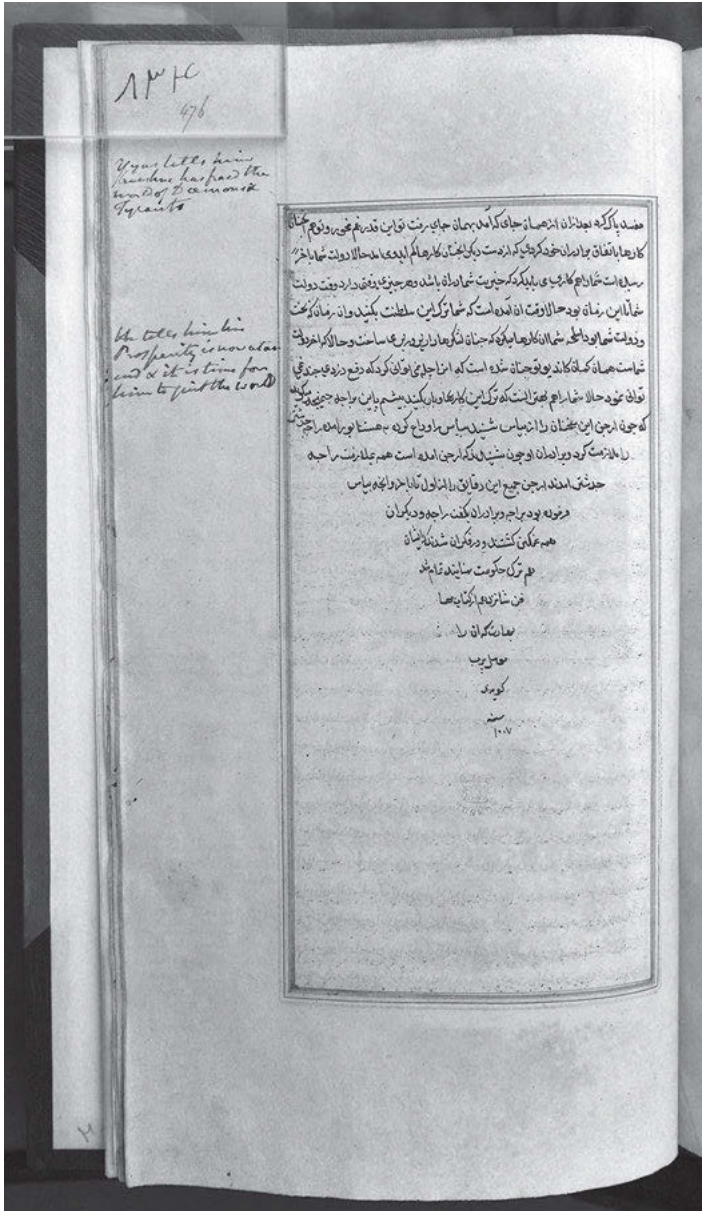 476
Vyas tells him
Krishna has freed the
world of Daemons &
Tyrants
He tells him his
Prosperity is now at an
end & it is time for
him to quit the World
مفسد پاک کرد بعد ازان از همان جای که آمد بهمان جای رفت تو این قدر غم مخور و تو هم
کارها باتفاق برادران خود کردی که از دست دیگری کارها کم آمد حالا دولت شما باخر
رسیده است شما را هم کاری می باید کرد که خیریت شما دران باشد و هر چیزی وقتی دارد وقت دولت
شما تا این زمان بود حالا وقت آن آمده است که شما ترک این سلطنت بکنید و آن زمان که بخت
و دولت شما بود اسلحه شما آن کارها میکرد که چنان و حالا که آخر دولت
شماست همان کمان کاندیو تو چنان شده است که از
توانی نمود حالا شما را هم بهتر آنست که ترک این کار و بار بکنید بیشم پاین براجه جنمیجه میگوید
که چون ارجن این سخنان را از بیاس شنید بیاس را وداع کرده به هستناپور آمده راجه جدشتر
را ملازمت کرد و برادران او چون شنیدند که ارجن آمده است همه بملازمت راجه
جدشتر آمدند ارجن جمیع این دقایق را از اول تا باخر و آنچه بیاس
فرموده بود براجه و برادران بگفت راجه و دیگران
همه غمگین گشتند و در فکر آن شدند که ایشان
هم ترک حکومت نمایند تمام شد
فن شانزدهم از کتاب مها
بهارت که آن را
موسل پرب
گویند
سنه
۱۰۰۷